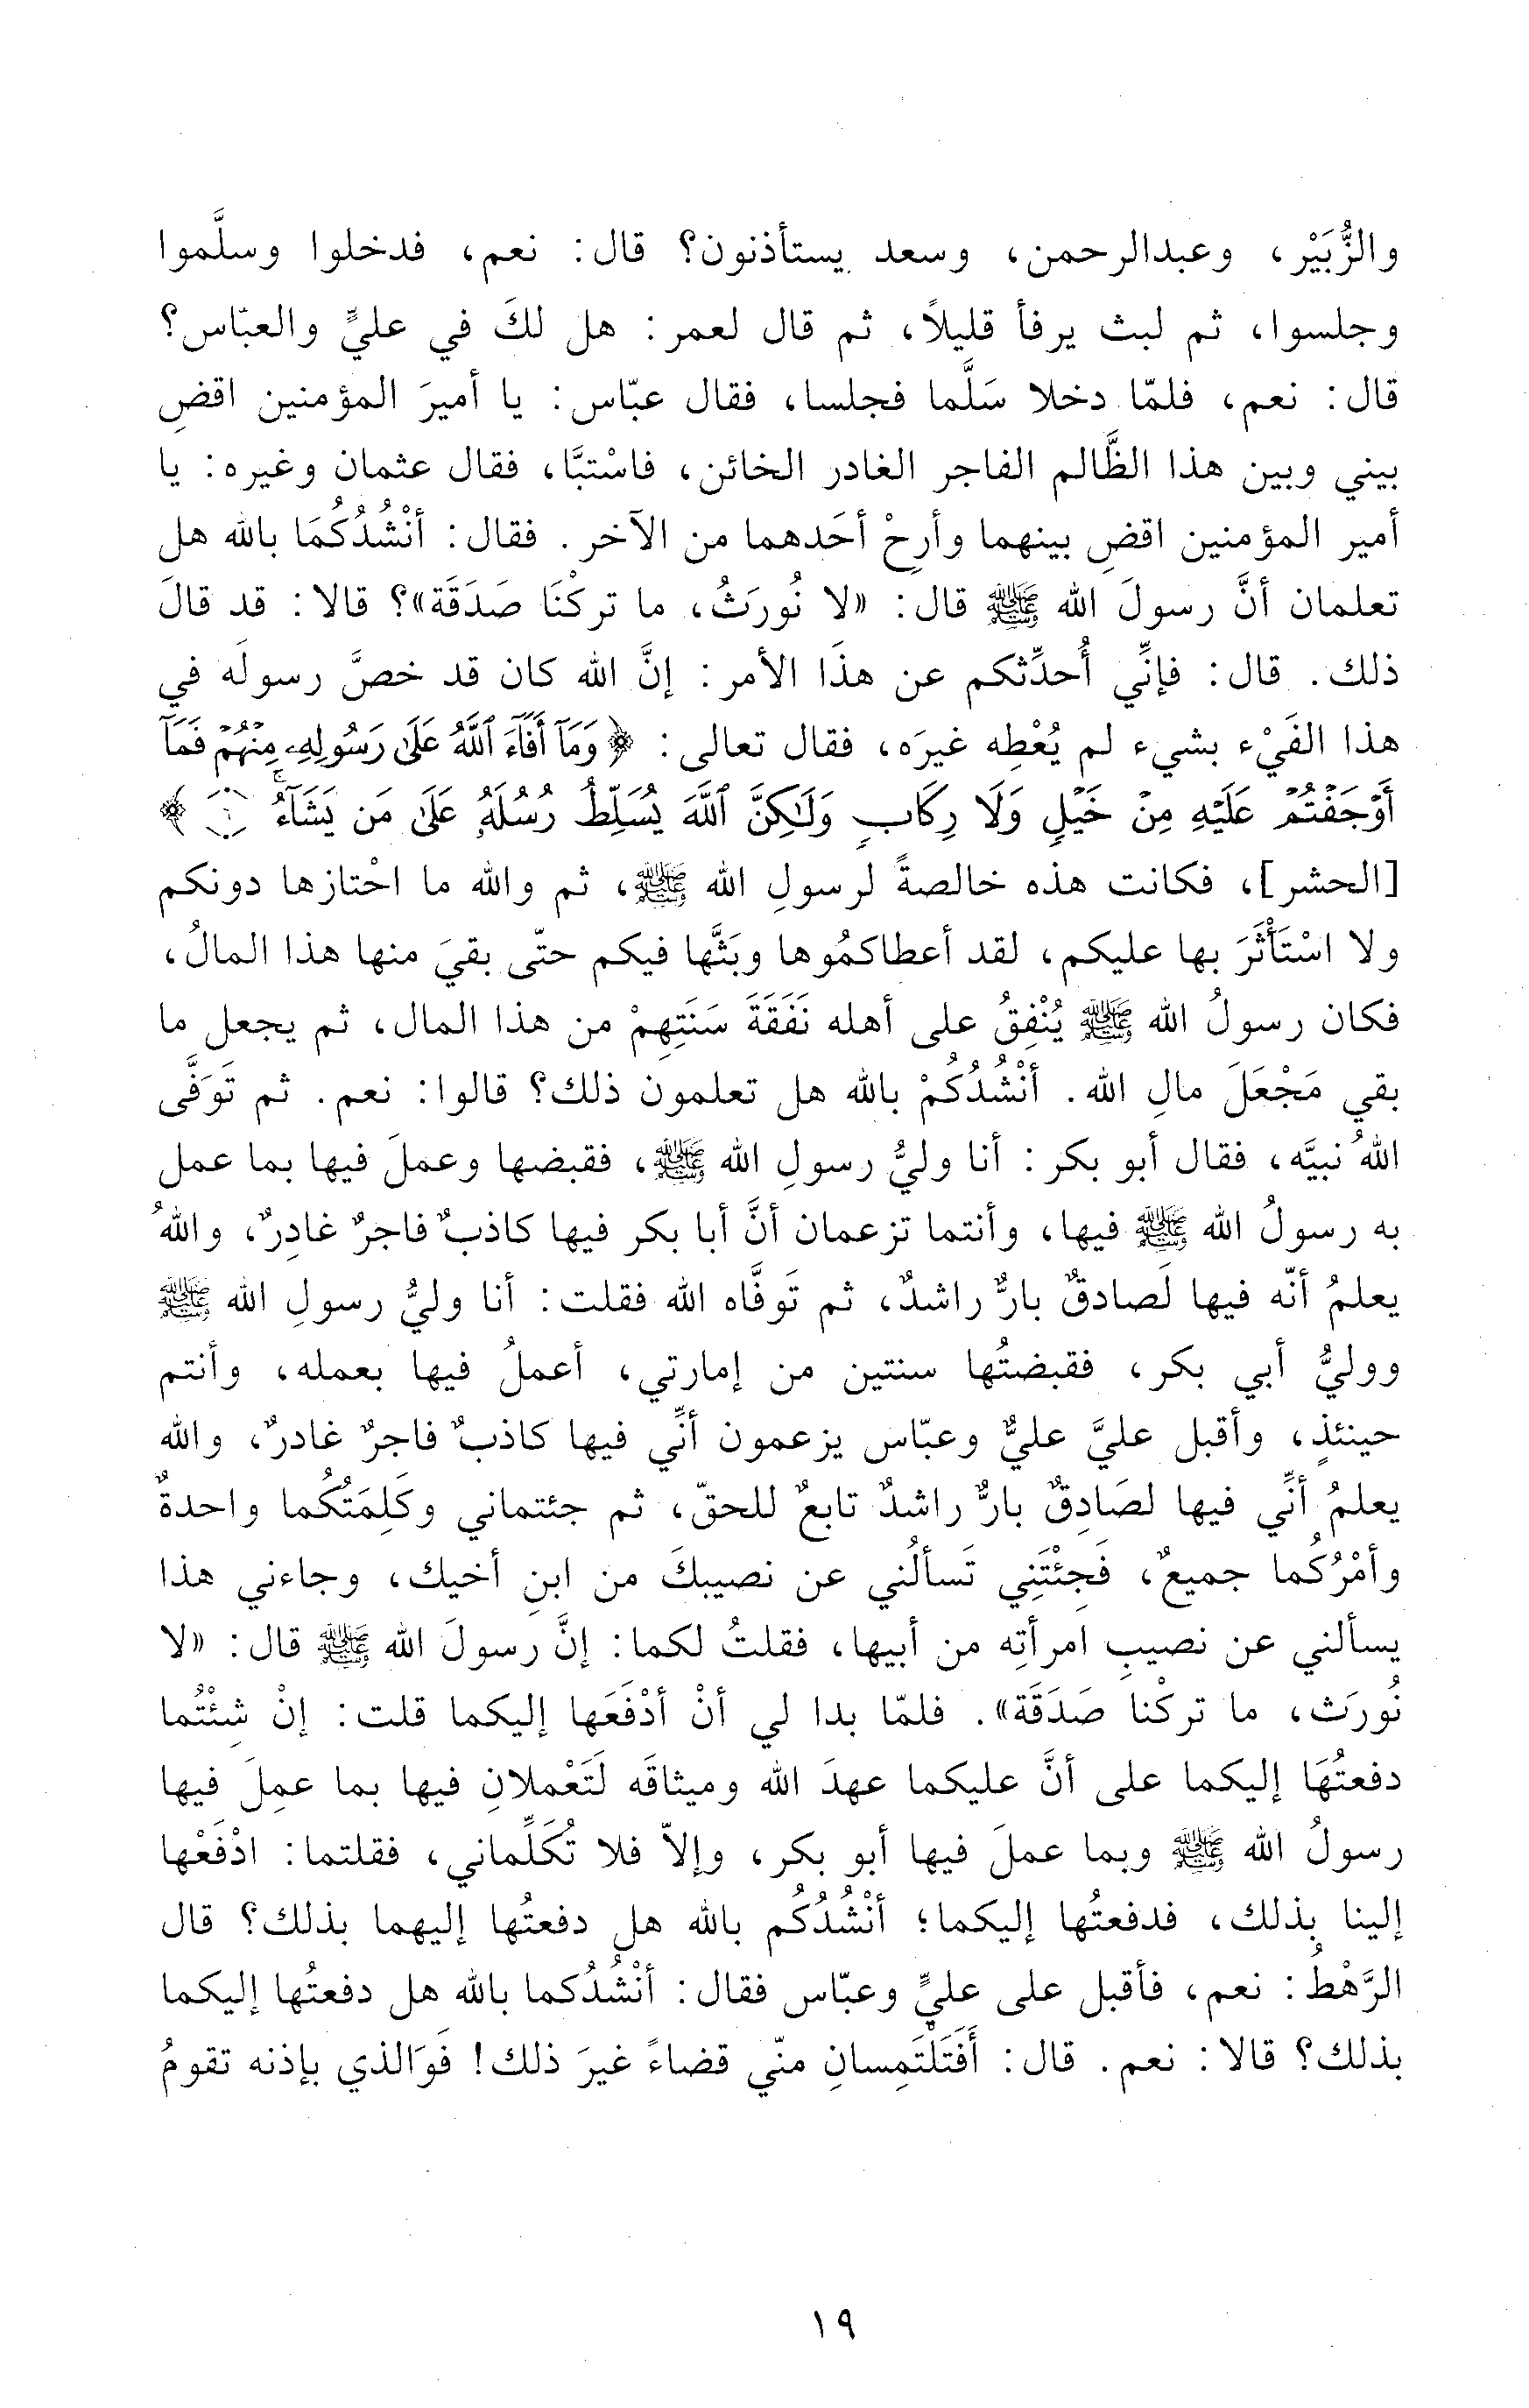 والزُّبَيْر، وعبدالرحمن، وسعد يستأذنون؟ قال: نعم، فدخلوا وسلَّموا
وجلسوا، ثم لبث يرفأ قليلاً، ثم قال لعمر: هل لكَ في عليٍّ والعبّاس؟
قال: نعم، فلمّا دخلا سَلَّما فجلسا، فقال عبّاس: يا أميرَ المؤمنين اقضِ
بيني وبين هذا الظَّالم الفاجر الغادر الخائن، فاسْتبَّا، فقال عثمان وغيره: يا
أمير المؤمنين اقضِ بينهما وأرِحْ أحَدهما من الآخر. فقال: أنْشُدُكُمَا بالله هل
تعلمان أنَّ رسولَ الله ﷺ قال: «لا نُورَثُ، ما تركْنَا صَدَقَة»؟ قالا: قد قالَ
ذلك. قال: فإنِّي أُحدِّثكم عن هذَا الأمر: إنَّ الله كان قد خصَّ رسولَه في
هذا الفَيْء بشيء لم يُعْطِه غيرَه، فقال تعالى: ﴿وَمَآ أَفَآءَ ٱللَّهُ عَلَىٰ رَسُولِهِۦ مِنْهُمْ فَمَآ
أَوْجَفْتُمْ عَلَيْهِ مِنْ خَيْلٍ وَلَا رِكَابٍ وَلَٰكِنَّ ٱللَّهَ يُسَلِّطُ رُسُلَهُۥ عَلَىٰ مَن يَشَآءُۚ ﴾
[الحشر]، فكانت هذه خالصةً لرسولِ الله ﷺ، ثم والله ما احْتازها دونكم
ولا اسْتَأْثَرَ بها عليكم، لقد أعطاكمُوها وبَثَّها فيكم حتّى بقيَ منها هذا المالُ،
فكان رسولُ الله ﷺ يُنْفِقُ على أهله نَفَقَةَ سَنَتِهِمْ من هذا المال، ثم يجعل ما
بقي مَجْعَلَ مالِ الله. أنْشُدُكُمْ بالله هل تعلمون ذلك؟ قالوا: نعم. ثم تَوَفَّى
اللهُ نبيَّه، فقال أبو بكر: أنا وليُّ رسولِ الله ﷺ، فقبضها وعملَ فيها بما عمل
به رسولُ الله ﷺ فيها، وأنتما تزعمان أنَّ أبا بكر فيها كاذبٌ فاجرٌ غادِرٌ، واللهُ
يعلمُ أنّه فيها لَصادقٌ بارٌّ راشدٌ، ثم تَوفَّاه الله فقلت: أنا وليُّ رسولِ الله ﷺ
ووليُّ أبي بكر، فقبضتُها سنتين من إمارتي، أعملُ فيها بعمله، وأنتم
حينئذٍ، وأقبل عليَّ عليٌّ وعبّاس يزعمون أنِّي فيها كاذبٌ فاجرٌ غادرٌ، والله
يعلمُ أنِّي فيها لصَادِقٌ بارٌّ راشدٌ تابعٌ للحقّ، ثم جئتماني وكَلِمَتُكُما واحدةٌ
وأمْرُكُما جميعٌ، فَجِئْتَنِي تَسألُني عن نصيبكَ من ابنِ أخيك، وجاءني هذا
يسألني عن نصيبِ امرأتِه من أبيها، فقلتُ لكما: إنَّ رسولَ الله ﷺ قال: «لا
نُورَث، ما تركْنا صَدَقَة». فلمّا بدا لي أنْ أدْفَعَها إليكما قلت: إنْ شِئْتُما
دفعتُهَا إليكما على أنَّ عليكما عهدَ الله وميثاقَه لَتَعْملانِ فيها بما عمِلَ فيها
رسولُ الله ﷺ وبما عملَ فيها أبو بكر، وإلاّ فلا تُكَلِّماني، فقلتما: ادْفَعْها
إلينا بذلك، فدفعتُها إليكما؛ أنْشُدُكُم بالله هل دفعتُها إليهما بذلك؟ قال
الرَّهْطُ: نعم، فأقبل على عليٍّ وعبّاس فقال: أنْشُدُكما بالله هل دفعتُها إليكما
بذلك؟ قالا: نعم. قال: أَفَتَلْتَمِسانِ منّي قضاءً غيرَ ذلك! فَوَالذي بإذنه تقومُ
١٩